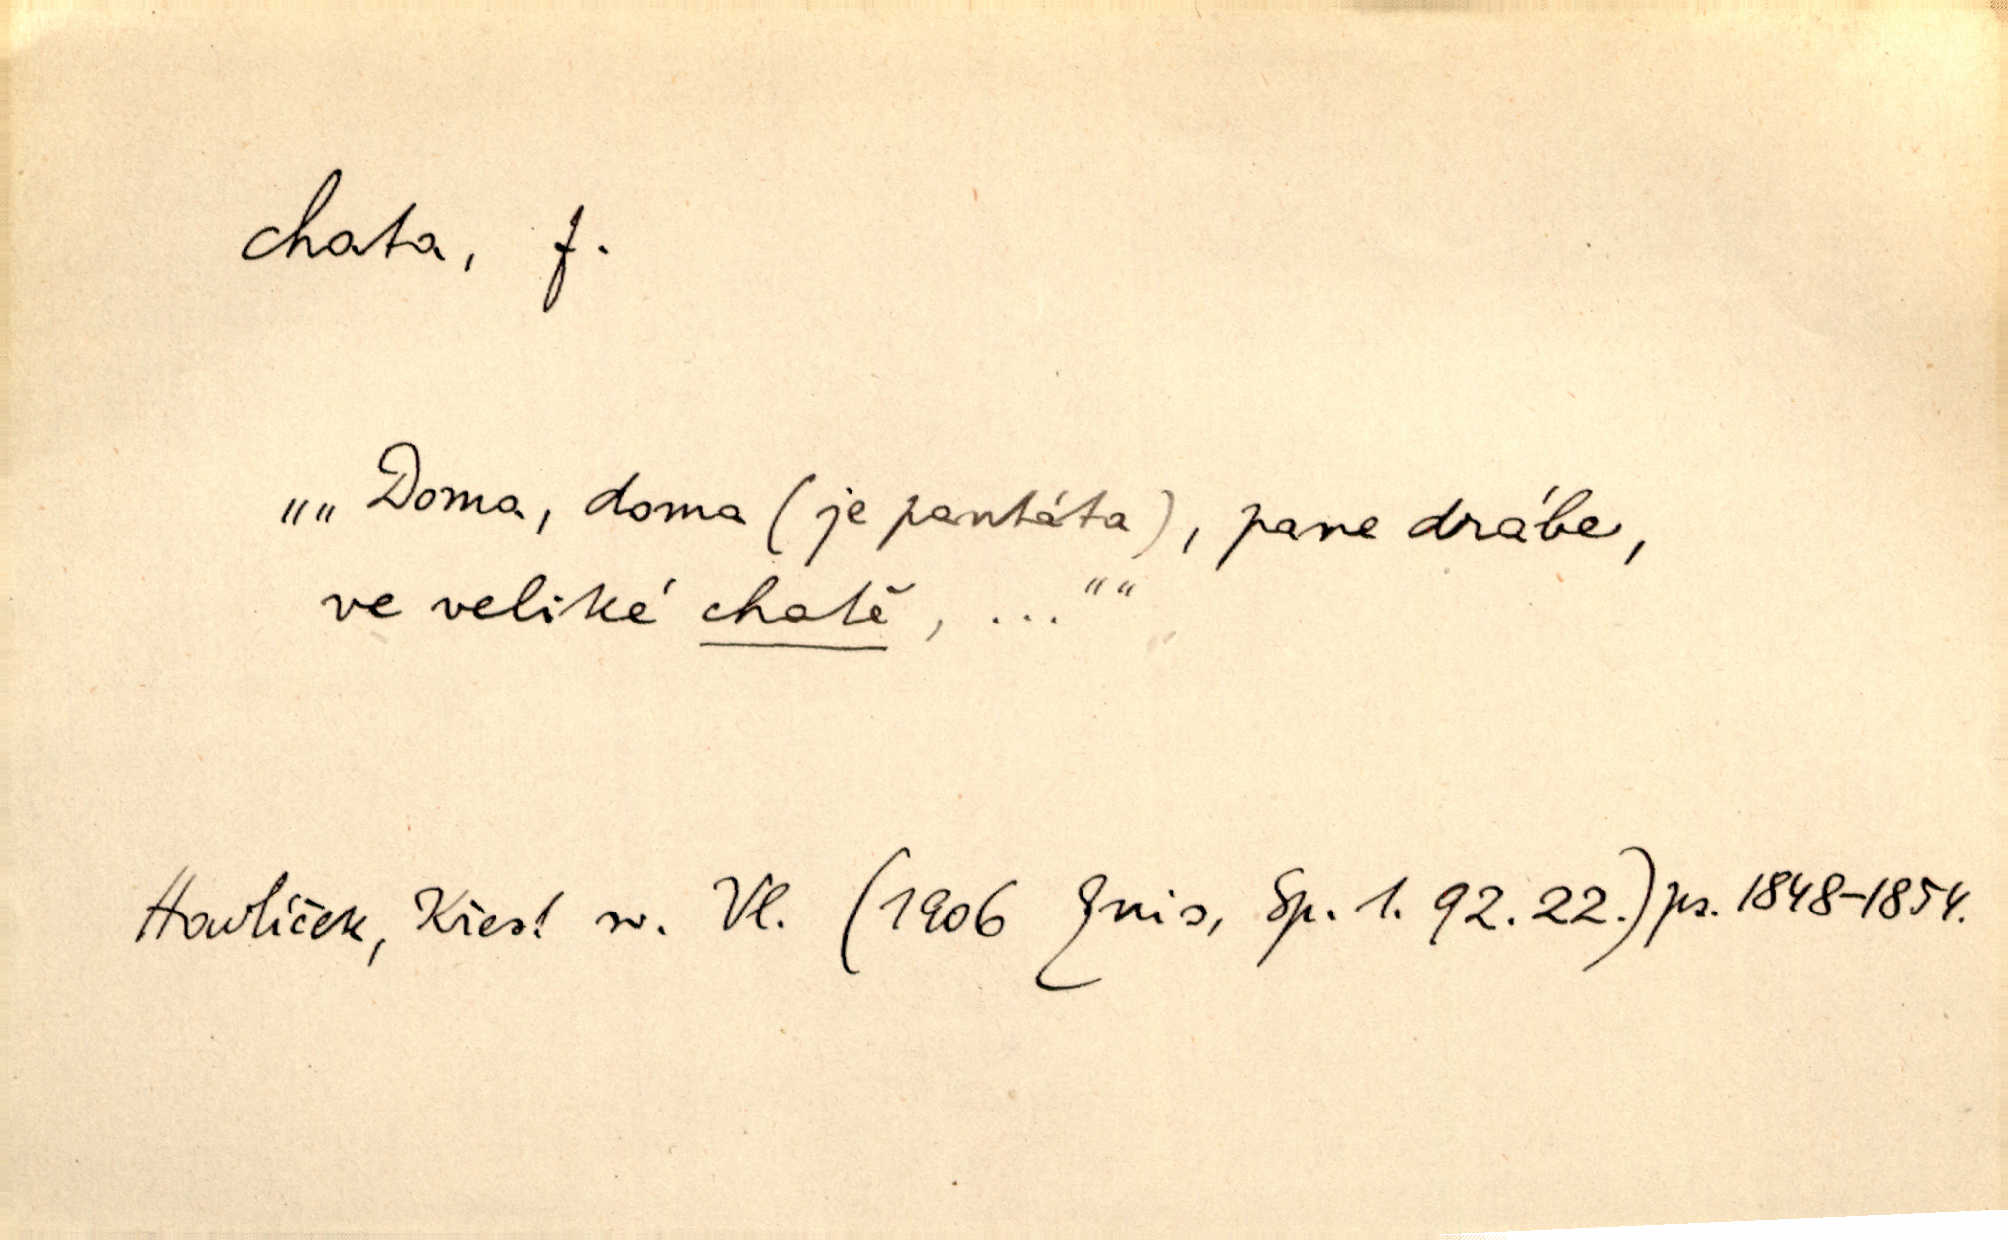 chata, f.
„„Doma, doma (je pantáta), pane drábe,
ve veliké chatě, ...““
Havlíček, Křest sv. Vl. (1906 Quis, Sp. 1. 92. 22.) ps. 1848-1854.